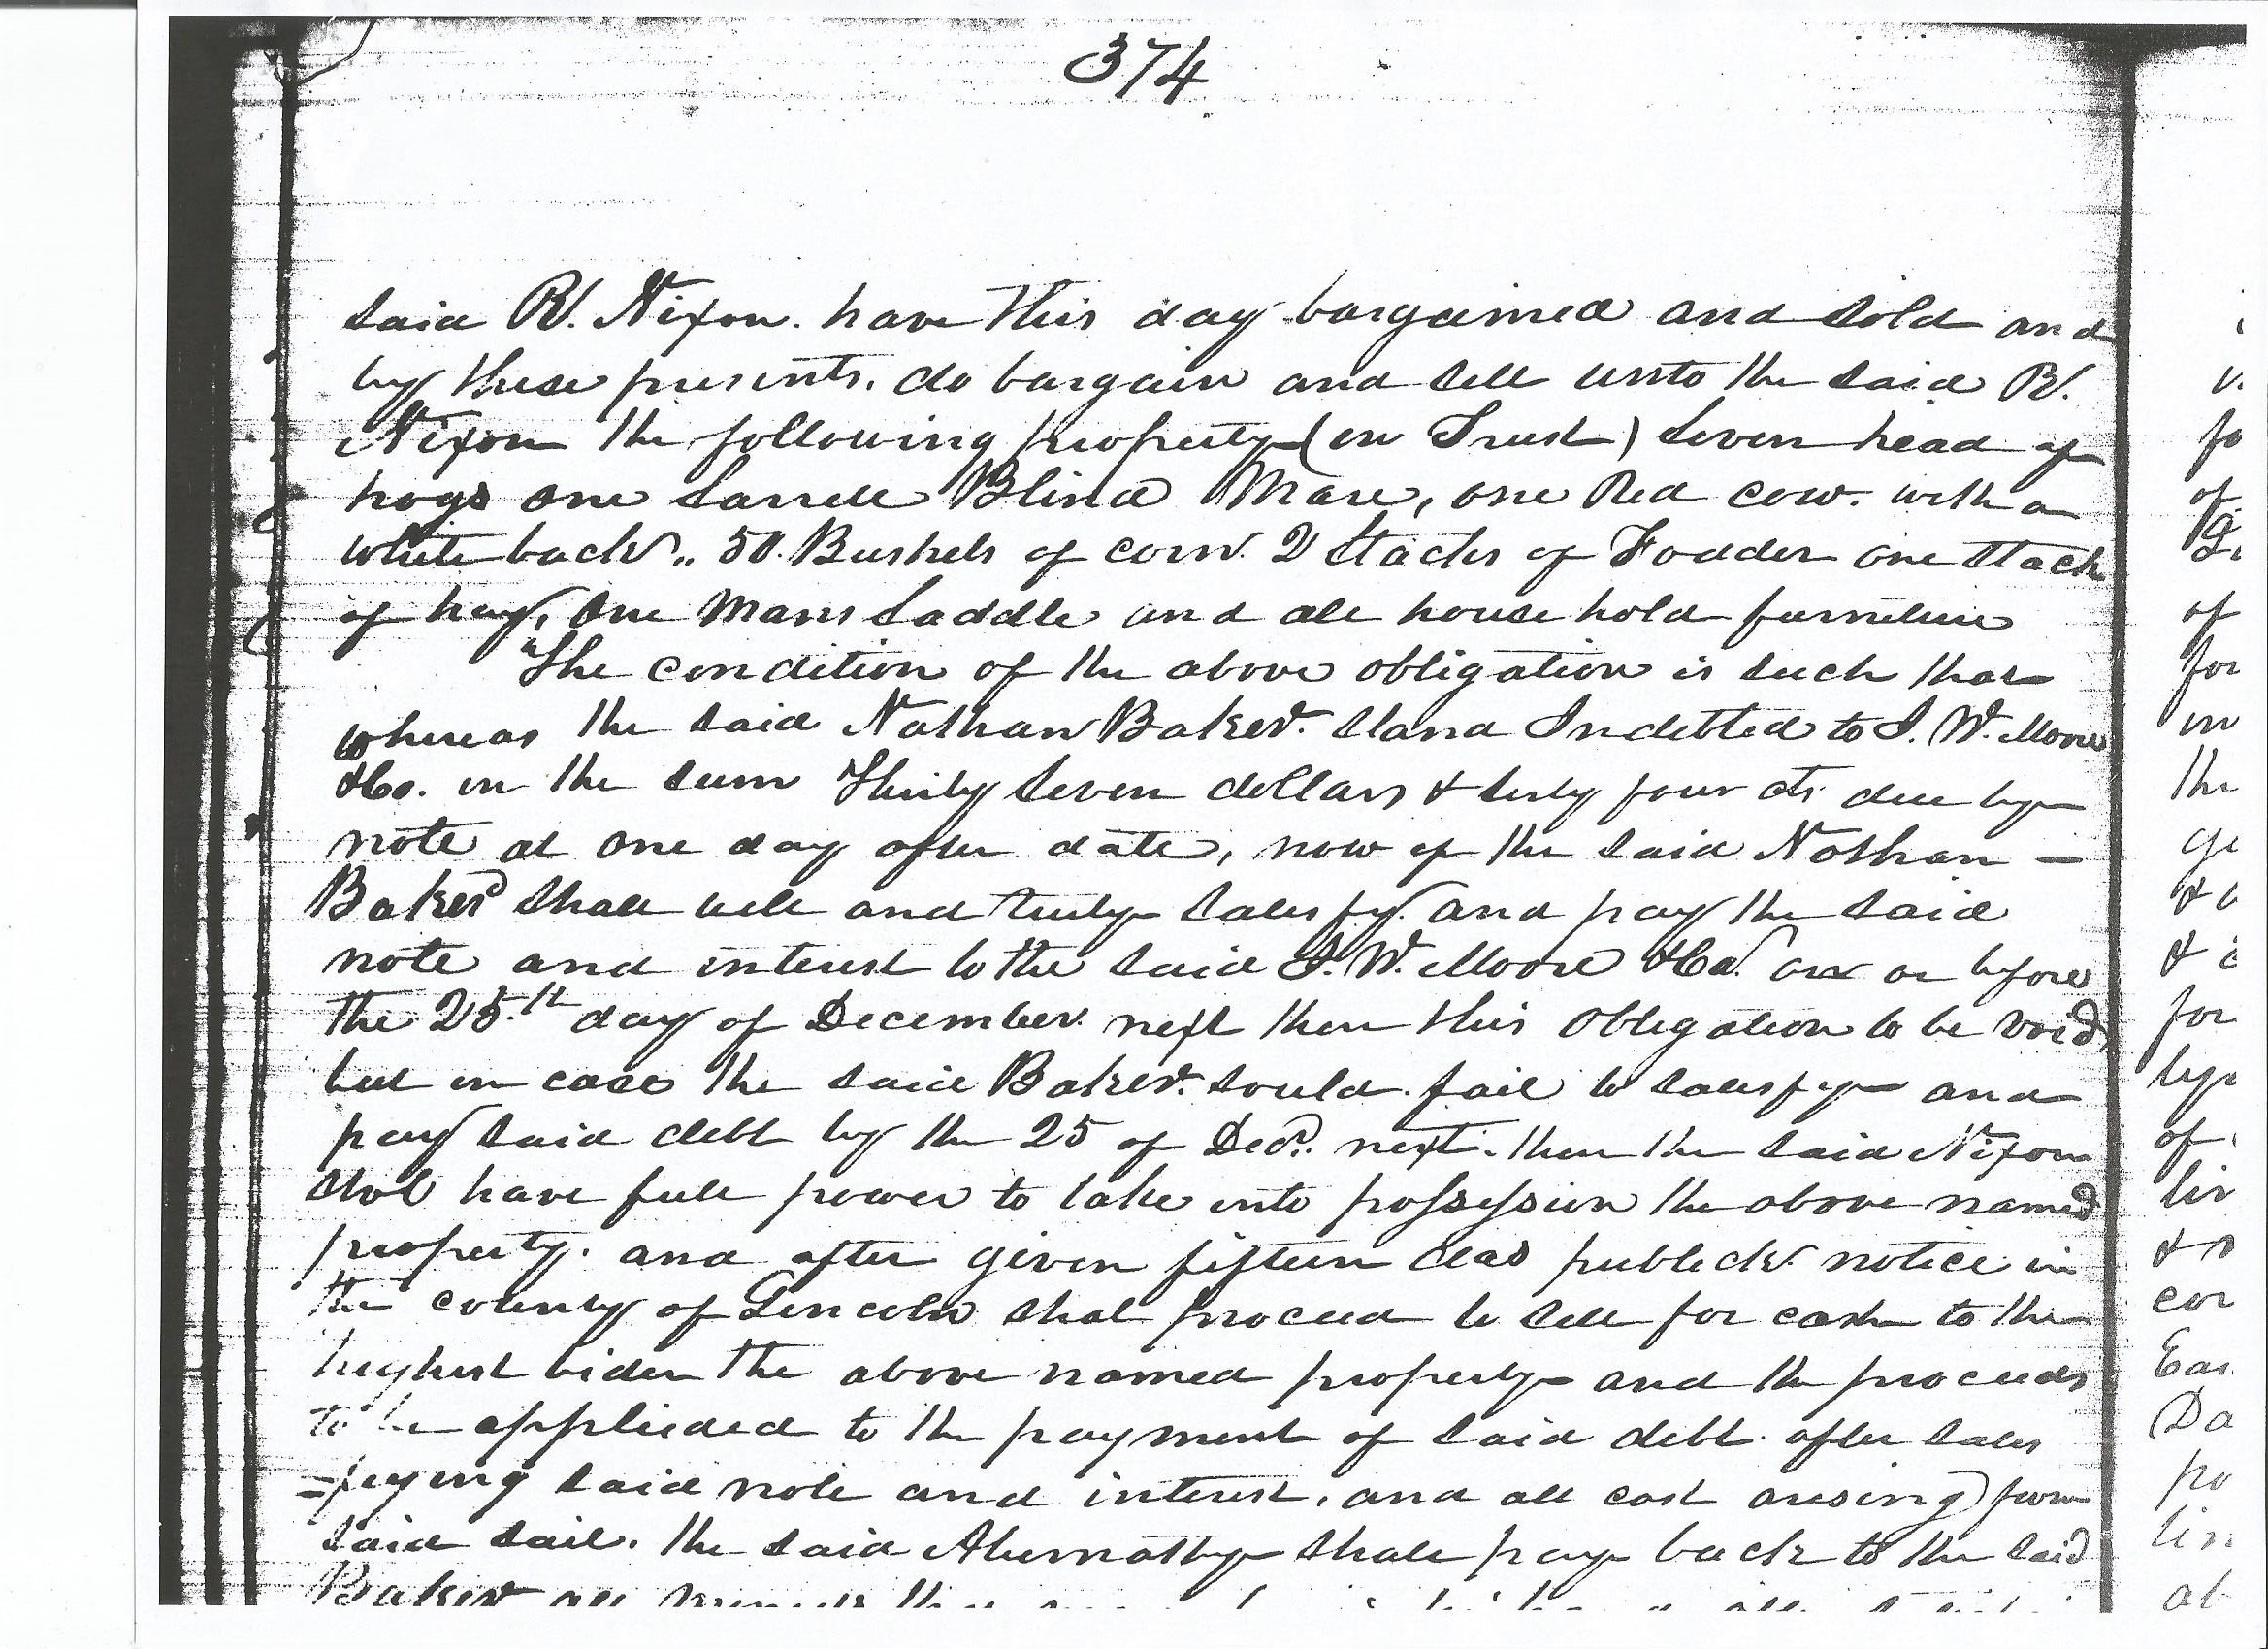 374
said R. Nixon. have this day bargained and sold and
by these presents. do bargain and sell unto the said R.
Nixon the following property (in Trust) Seven head of
hogs one Sarrell Blind Mare, one Red cow. with a
white back.. 50. Bushels of corn. 2 Stacks of Fodder one stack
of hay, One Mans Saddle and all house hold furniture
"The condition of the above obligation is such that
whereas the said Nathan Baker. stand Indetted to J. W. Moore
&Co. in the sum Thirty Seven dollars & sixty four cts due by
note at one day after date, now if the said Nathan —
Baker shall well and truly satisfy. and pay the said
note and interest to the said J. W. Moore &Co. on or before
the 25.th day of December. next then this obligation to be void,
but in case the said Baker. sould. fail to satisfy and
pay said debt by the 25 of Dec. next. then the said Nixon
shal have full power to take into possession the above named
property. and after given fifteen das publick notice in
the county of Lincoln shal proceed to sell for cash to the
highest bider the above named property and the proceeds
to be applieded to the payment of said debt. after satis
=fying said note and interest. and all cost arising from
said sail. the said Abernathy shall pay back to the said
Baker all
v.
fo
of
of
for
in
the
ge
&
&
for
by
of
lin
&
cor
Eas
Da
po
lin
at